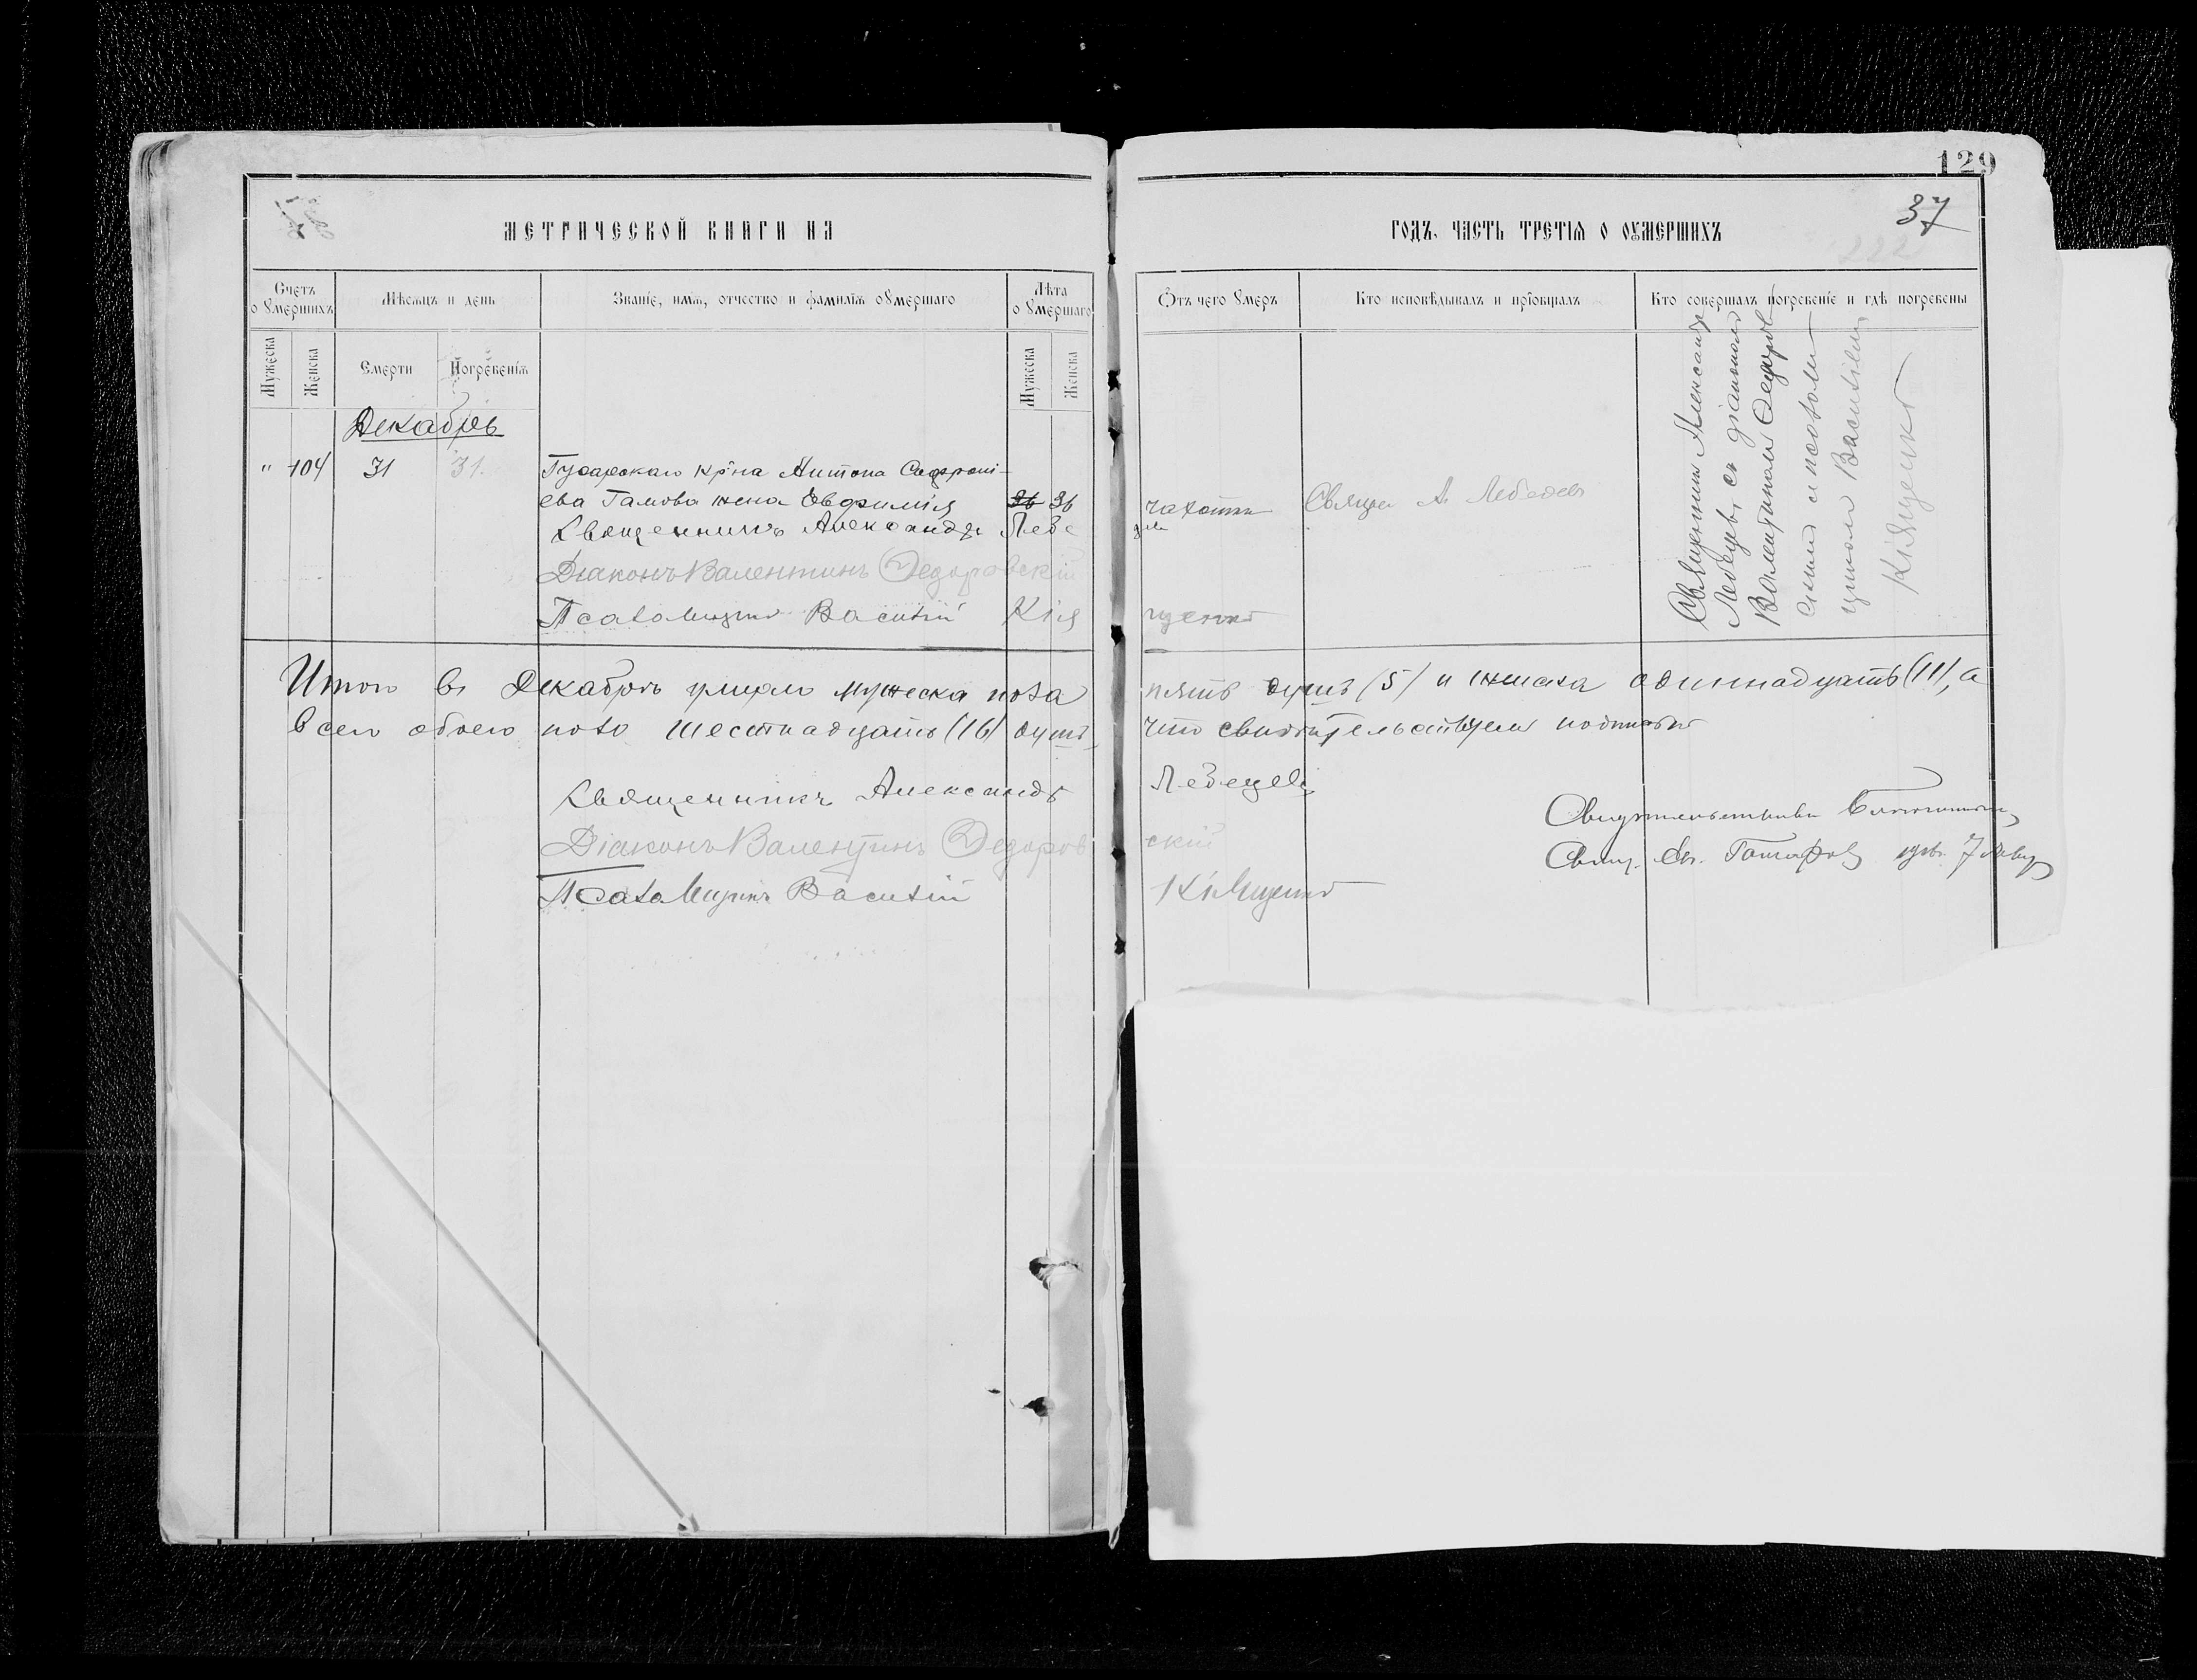 129
37
МЕТРИЧЕСКОЙ КНИГИ НА
ГОДЪ, ЧАСТЬ ТРЕТІѦ О ОУМЕРШИХЪ
Счетъ оумершихъ
Мѣсяцъ и день
Званіе, имѧ, отчество и фамиліѧ оумершаго
Лѣта оумершаго
Отъ чего умеръ
Кто исповѣдывалъ и пріобщалъ
Кто совершалъ погребеніе и гдѣ погребены
Мужеска
Женска
Смерти
Погребеніѧ
Мужеска
Женска
Декабрь
" 104 31 31.
Антона Софрони-
ева Гамова жена Евфимія 36 36
чахотки
Священ А. Лебедевъ
Священникъ Александръ Лебе
Діаконъ Валентинъ Ѳедоровскій
Псаломщикъ Василій Кія
щенко
Священникъ Александръ
Лебедевъ съ діакономъ
Валентиномъ Ѳедоров
скимъ и псалом
щикомъ Василіемъ
Кіященко
Итого въ Декабрѣ умерло мужеска пола пять душъ (5) и женска одиннадцать (11), а
всего обоего пола шестнадцать (16) душъ, что свидѣтельствуемъ подписью
Священникъ Александръ Лебедевъ
Діаконъ Валентинъ Ѳедоров
скій
Псаломщикъ Василій Кіященко
Свящ.